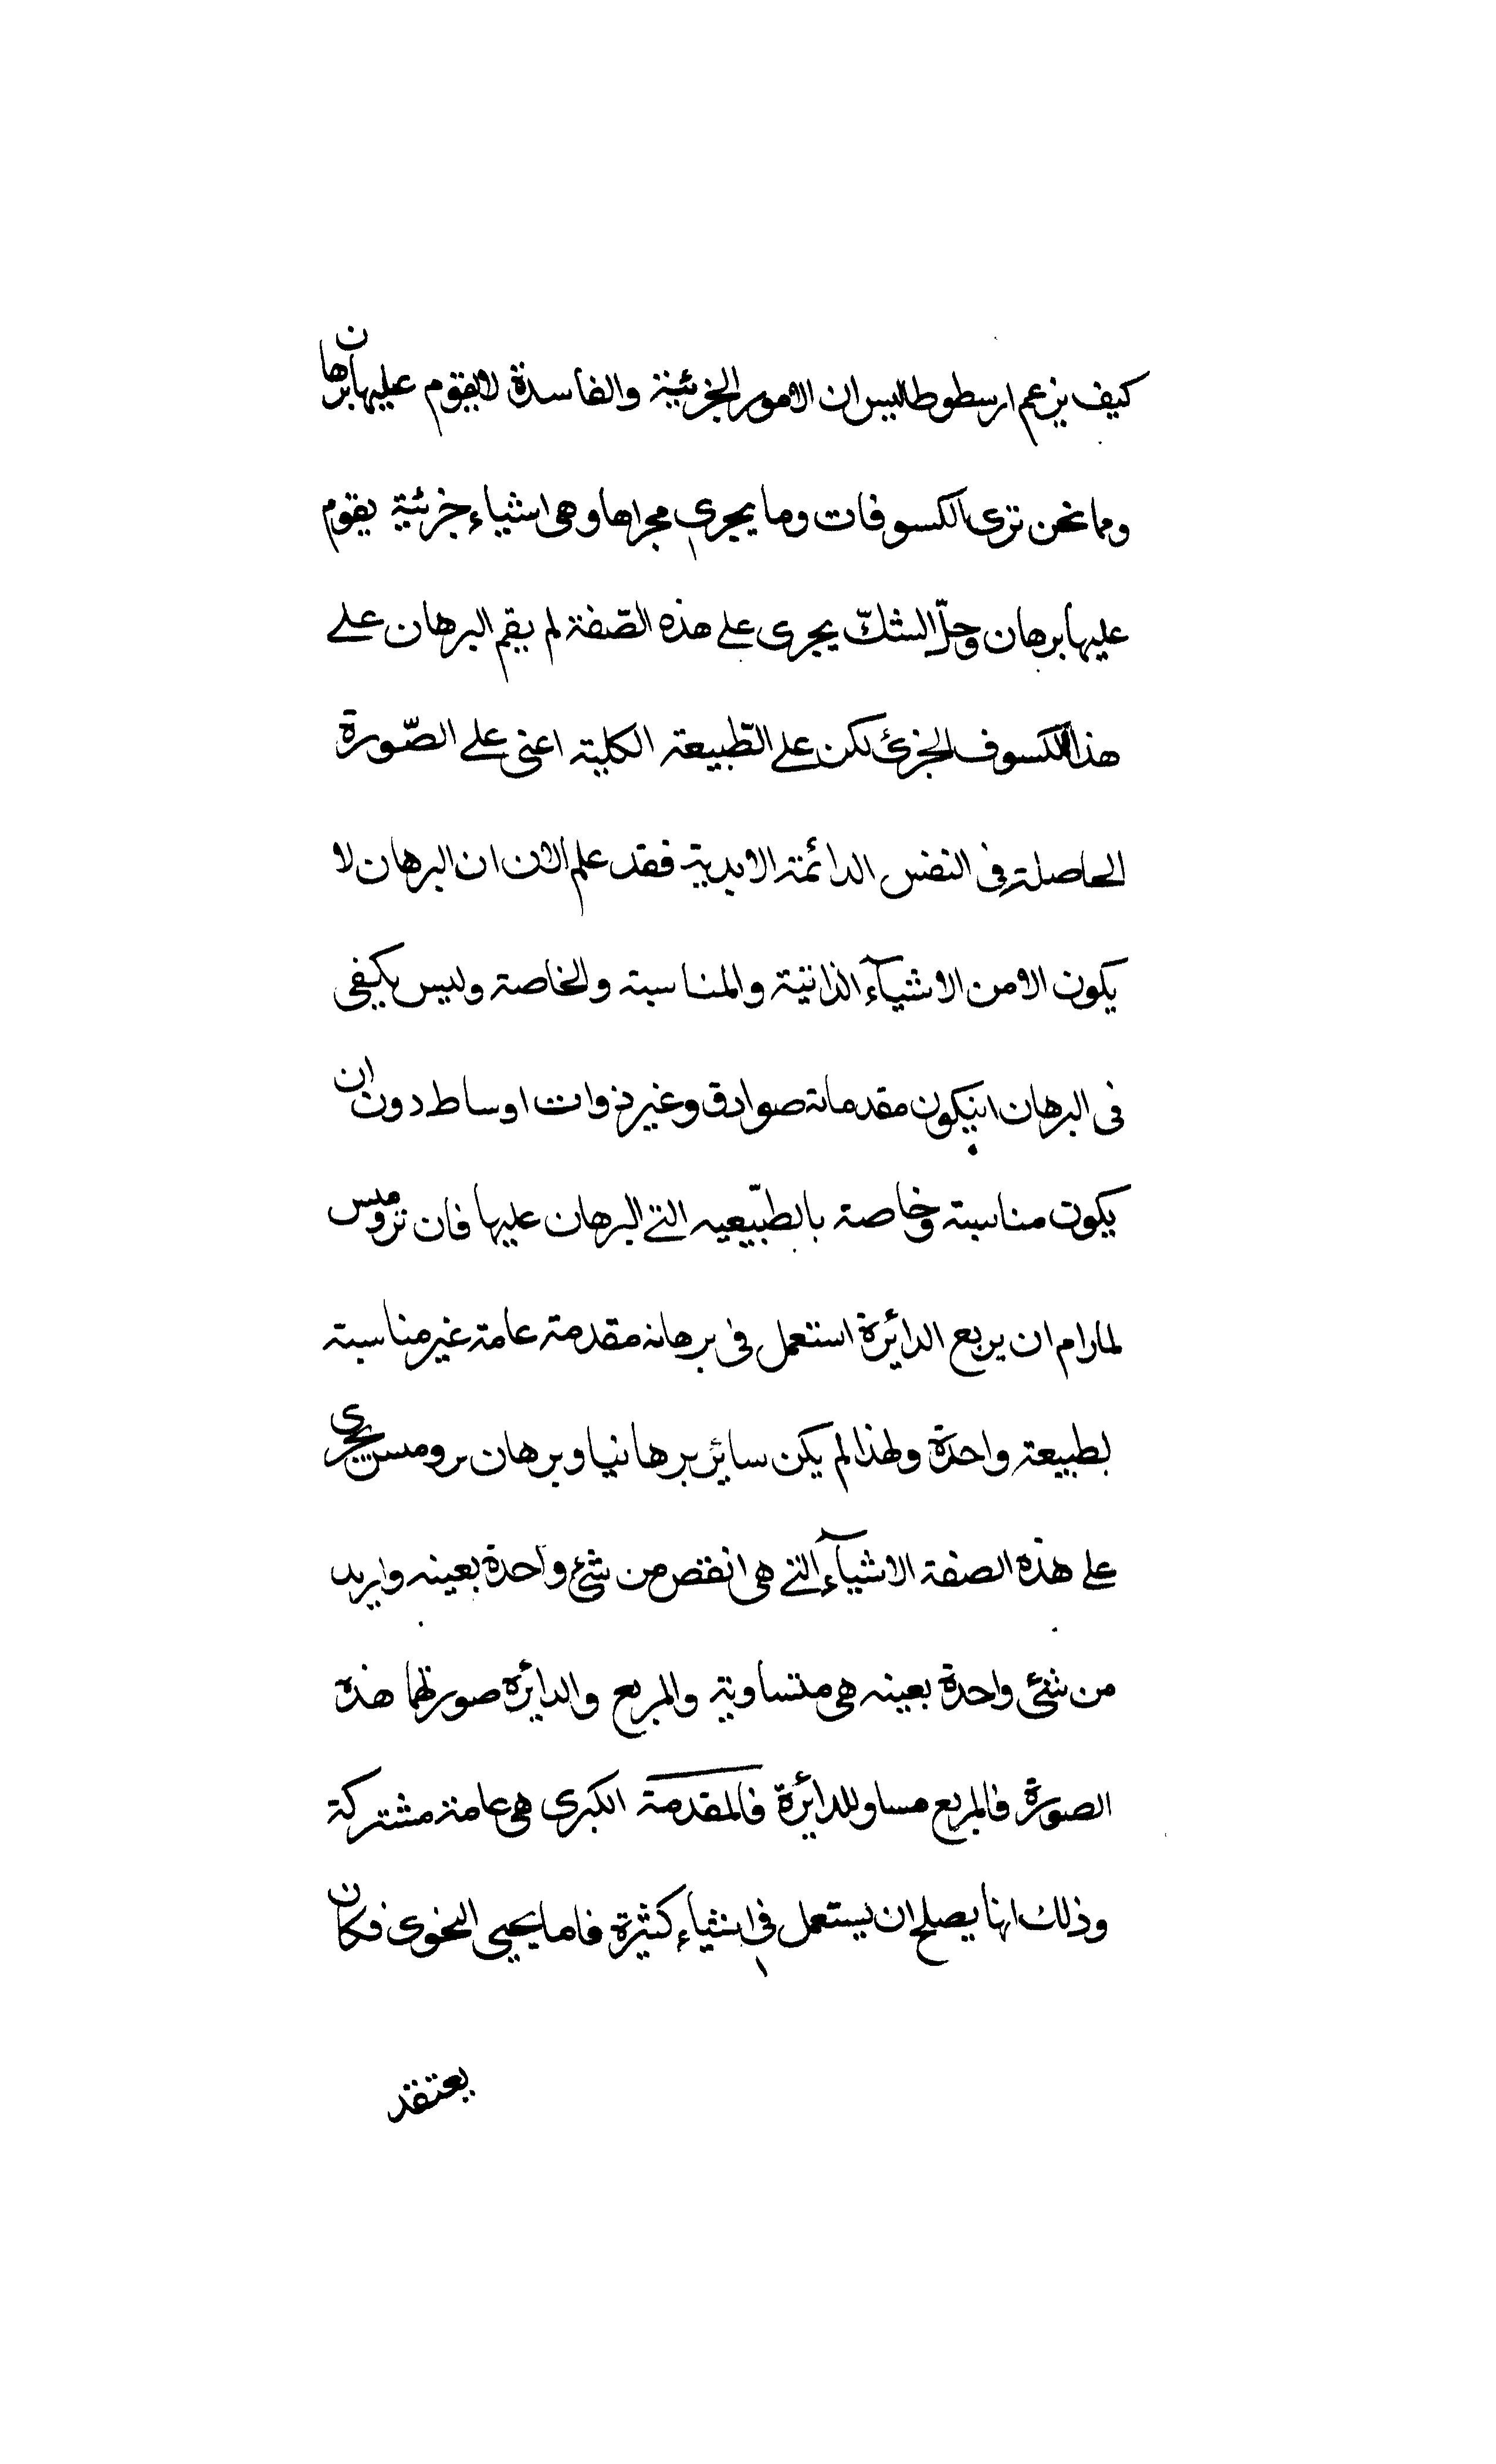 كيف يزعم ارسطوطاليس ان الامور الجزئية والفاسدة لا يقوم عليها برهان
وما نحن نرى الكسوفات وما يجري مجراها وهى اشياء جزئية يقوم
عليها برهان وحلّ الشكّ يجرى على هذه الصّفة لم يقم البرهان على
هذا الكسوف الجزئ لكن على الطّبيعة الكلية اعنى على الصّورة
الحاصلة فى النفس الدائمة الابدية فقد علم الان ان البرهان لا
يكون الا من الاشيآء الذاتية والمناسبة والخاصة وليس يكفى
فى البرهان انيكون مقدماته صوادق وغير ذوات اوساط دون ان
يكون مناسبة وخاصة بالطبّيعيه التى البرهان عليها فان نرومس
لما رام ان يربع الدائرة استعمل فى برهانه مقدمة عامة غير مناسبة
لطبيعة واحدة ولهذا لم يكن سائر برهانيا وبرهان برومس يجرى
على هذه الصفة الاشيآء التى هى انقص من شئ واحدة بعينه وازيد
من شئ واحدة بعينه هى متساوية والمربع والدائرة صورتها هذه
الصورة فالمربع مساو للدائرة فالمقدمة الكبرى هى عامة مشتركة
وذلك انها يصلح ان يستعمل فى اشياء كثيرة فاما يحيى النحوى فكان
يعتقد